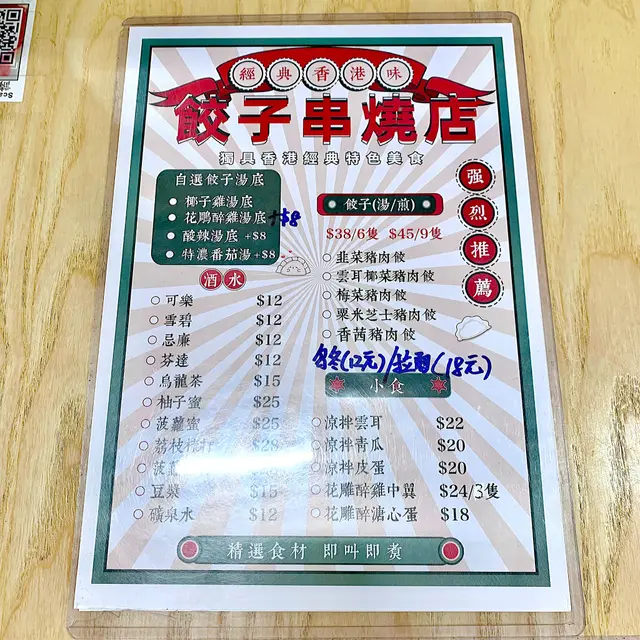 經典香港味
餃子串燒店
獨具香港經典特色美食
强烈推薦
自選餃子湯底
椰子雞湯底
花鵰醉雞湯底 +$8
酸辣湯底 +$8
特濃番茄湯 +$8
酒水
可樂 $12
雪碧 $12
忌廉 $12
芬達 $12
烏龍茶 $15
柚子蜜 $25
菠蘿蜜 $25
荔枝梳打 $28
豆漿 $15
礦泉水 $12
餃子(湯/煎)
$38/6隻 $45/9隻
韭菜豬肉餃
雲耳椰菜豬肉餃
梅菜豬肉餃
粟米芝士豬肉餃
香茜豬肉餃
(12元)/ (18元)
小食
涼拌雲耳 $22
涼拌青瓜 $20
涼拌皮蛋 $20
花雕醉雞中翼 $24/3隻
花雕醉溏心蛋 $18
精選食材 即叫即煮